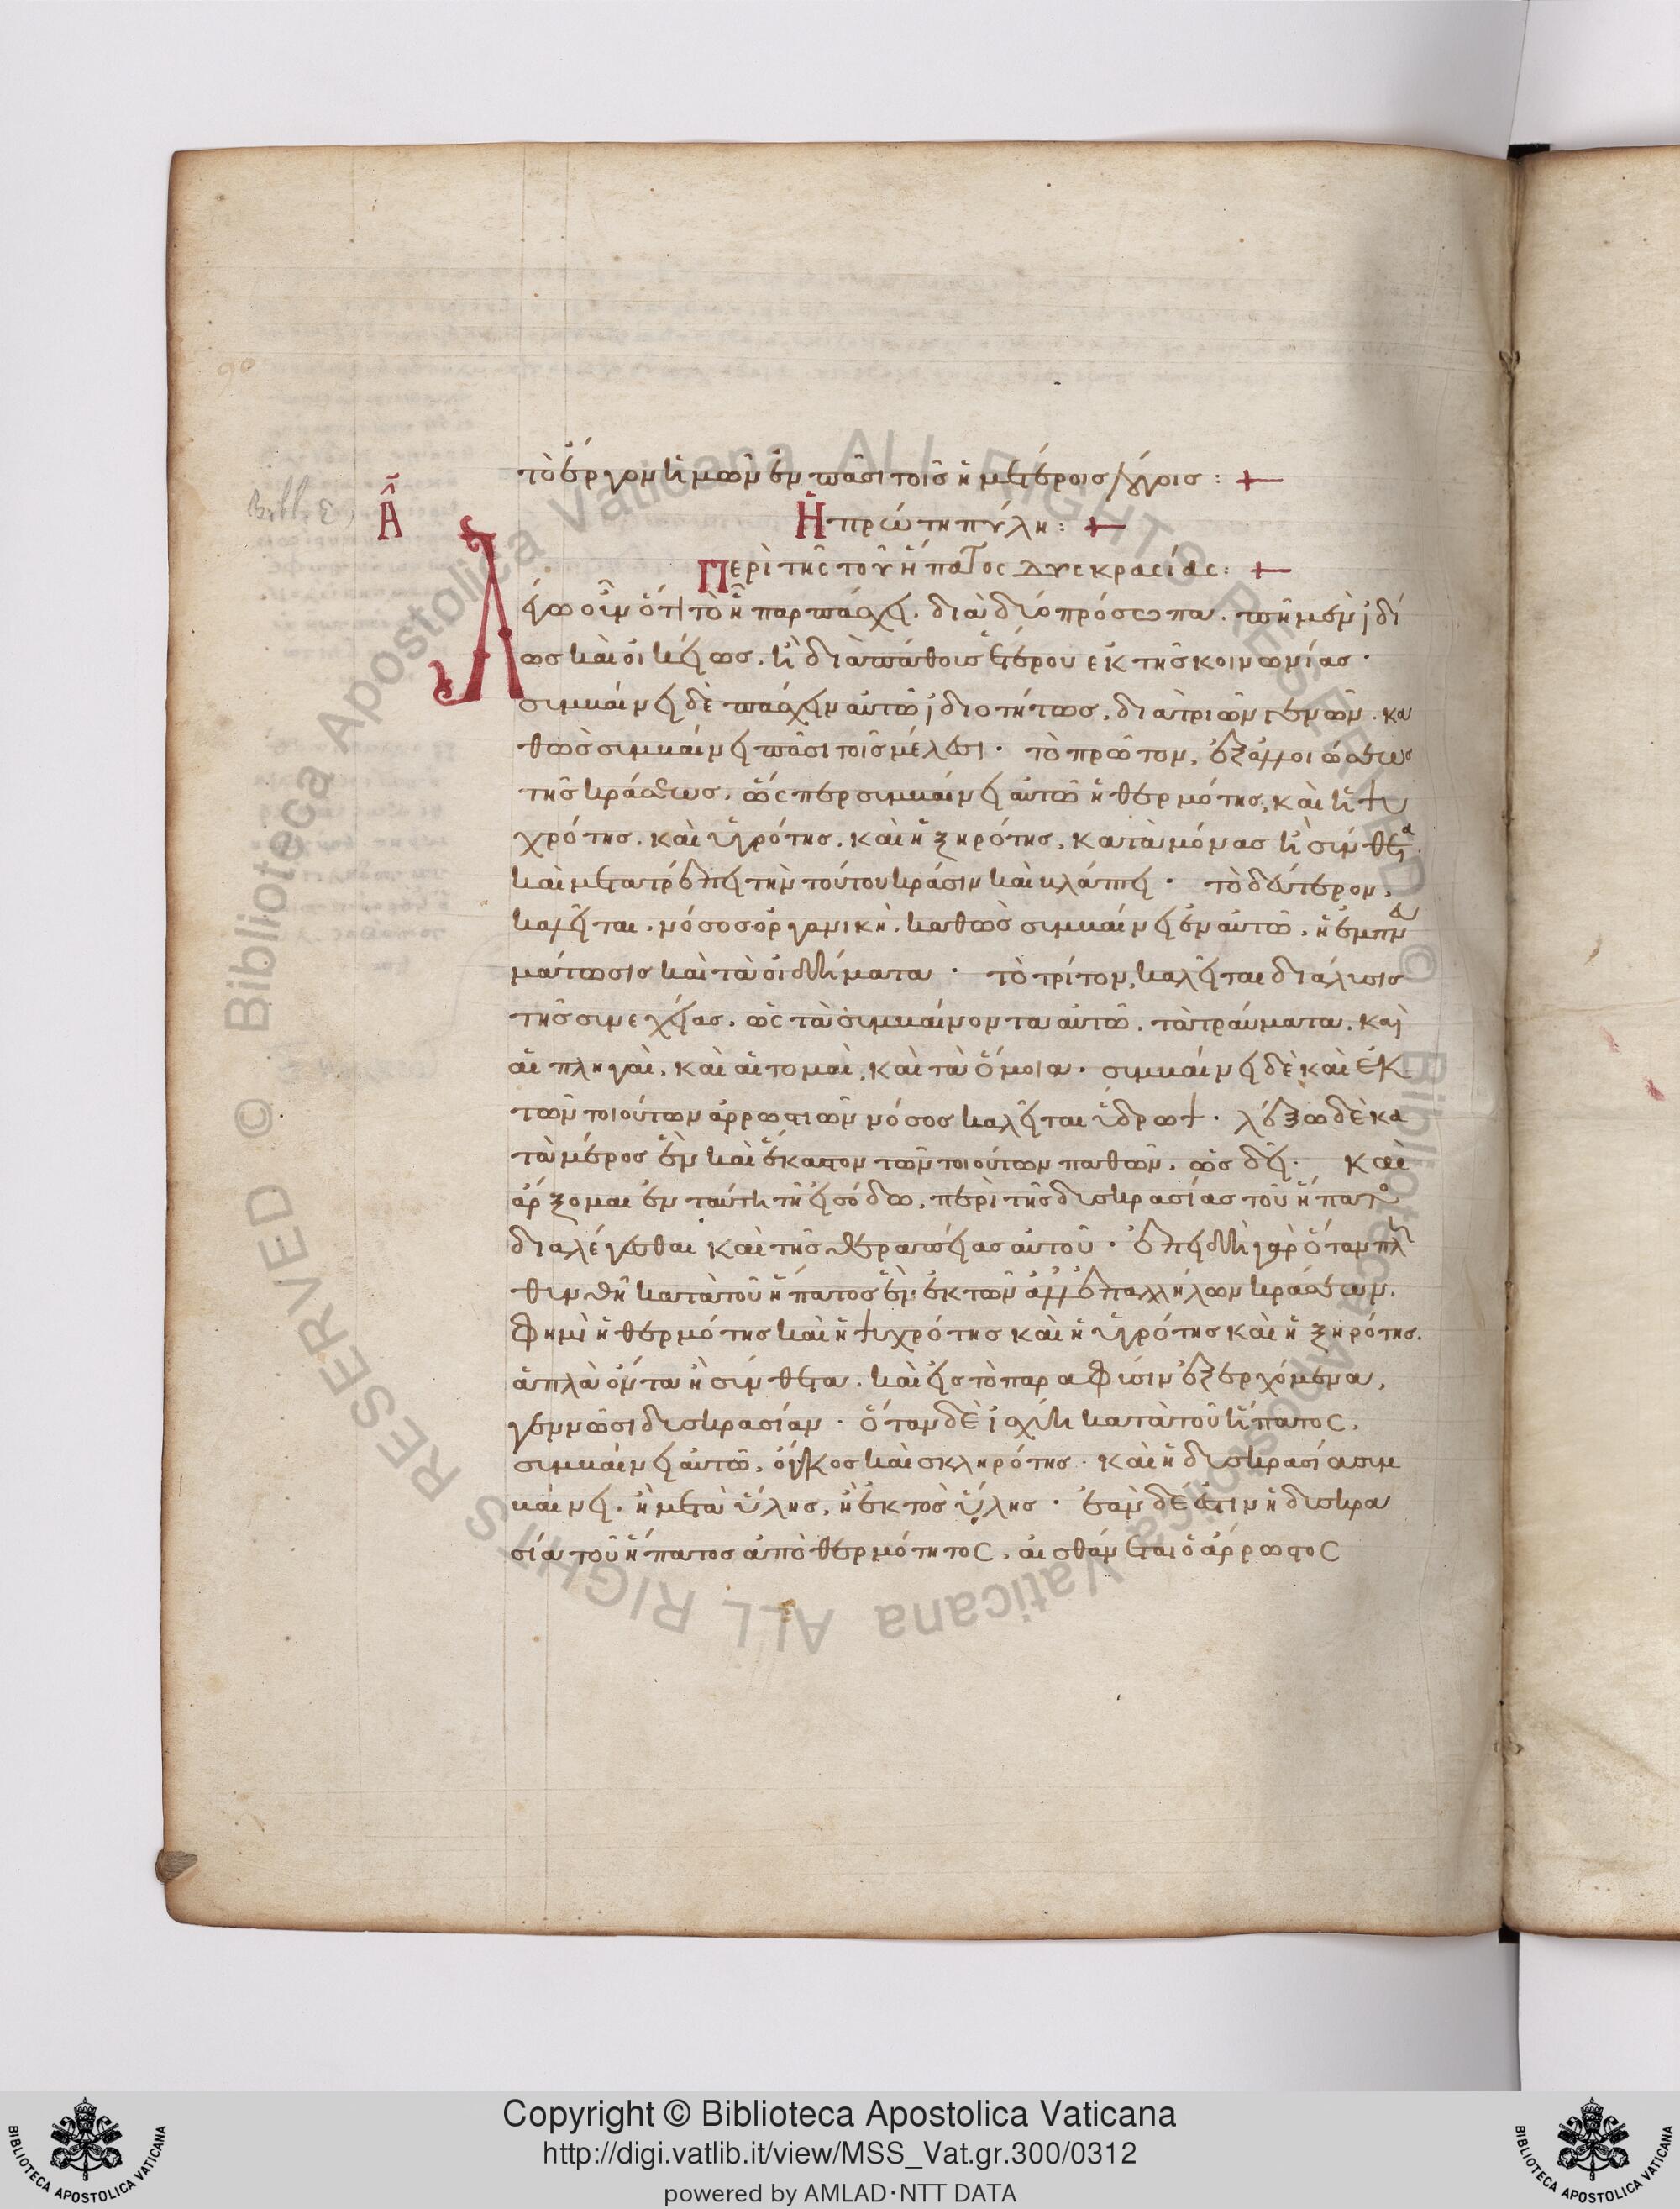 τὸ ἔργον ἡμῶν ἐν πᾶσι τοῖς ἡμετέροις λόγοις : +
Bill. E,
Α
Ἡ πρώτη πύλη : +
Περὶ τῆς τοῦ ἥπατος δυσκρασίας : +
Λέγω οὖν ὅτι τὸ ἧπαρ πάσχει. διὰ δύο πρόσωπα. πῆ μὲν ἰδί
ως καὶ οἰκείως. ἢ διὰ πάθους ἑτέρου ἐκ τῆς κοινωνίας.
συμβαίνει δὲ πάσχειν αὐτῶ ἰδιοτήτως, διὰ τριῶν γενῶν. κα
θὼς συμβαίνει πᾶσι τοῖς μέλεσι. τὸ πρῶτον, ἐξ ἀλλοιώσεως
τῆς κράσεως. ὥσπερ συμβαίνει αὐτῶ ἡ θερμότης, καὶ ἡ ψυ
χρότης. καὶ ὑγρότης. καὶ ἡ ξηρότης. κατὰ μόνας ἢ σύνθετα.
καὶ μετατρέπει τὴν τούτου κράσιν καὶ βλάπτει. τὸ δεύτερον,
καλεῖται, νόσος ὀργανικὴ. καθὼς συμβαίνει ἐν αὐτῶ. ἡ ἐμπνευ
μάτωσις καὶ τὰ οἰδήματα. τὸ τρίτον, καλεῖται διάλυσις
τῆς συνεχείας. ὡς τὰ συμβαίνοντα αὐτῶ. τὰ τραύματα. καὶ
αἱ πληγαὶ, καὶ αἱ τομαὶ, καὶ τὰ ὅμοια. συμβαίνει δὲ καὶ ἐκ
τῶν τοιούτων ἀρρωστιῶν νόσος καλεῖται ὕδρωψ. λέξω δὲ κα
τὰ μέρος ἓν καὶ ἕκαστον τῶν τοιούτων παθῶν. ὡς δεῖ. καὶ
ἄρξομαι ἐν ταύτη τῆ εἰσόδω, περὶ τῆς δυσκρασίας τοῦ ἥπατος
διαλέγεσθαι καὶ τῆς θεραπείας αὐτοῦ. ἐπειδὴ γὰρ ὅταν πλη
θυνθῆ κατὰ τοῦ ἥπατος ἓν ἐκ τῶν ἀλλεπαλλήλων κράσεων.
φημὶ ἡ θερμότης καὶ ἡ ψυχρότης καὶ ἡ ὑγρότης καὶ ἡ ξηρότης.
ἁπλὰ ὄντα ἢ σύνθετα. καὶ εἰς τὸ παρὰ φύσιν ἐξερχόμενα,
γεννῶσι δυσκρασίαν. ὅταν δὲ ἰσχύη κατὰ τοῦ ἥπατος,
συμβαίνει αὐτῶ, ὄγκος καὶ σκληρότης. καὶ ἡ δυσκρασία συμ
βαίνει. ἢ μετὰ ὕλης, ἢ ἐκτὸς ὕλης. ἐὰν δὲ ἐστιν ἡ δυσκρα
σία τοῦ ἥπατος ἀπὸ θερμότητος, αἰσθάνεται ὁ ἄρρωστος
Copyright © Biblioteca Apostolica Vaticana
http://digi.vatlib.it/view/MSS_Vat.gr.300/0312
powered by AMLAD·NTT DATA
BIBLIOTECA APOSTOLICA VATICANA
BIBLIOTECA APOSTOLICA VATICANA
© Biblioteca Apostolica Vaticana ALL RIGHTS RESERVED © Biblioteca Apostolica Vaticana ALL RIGHTS RESERVED